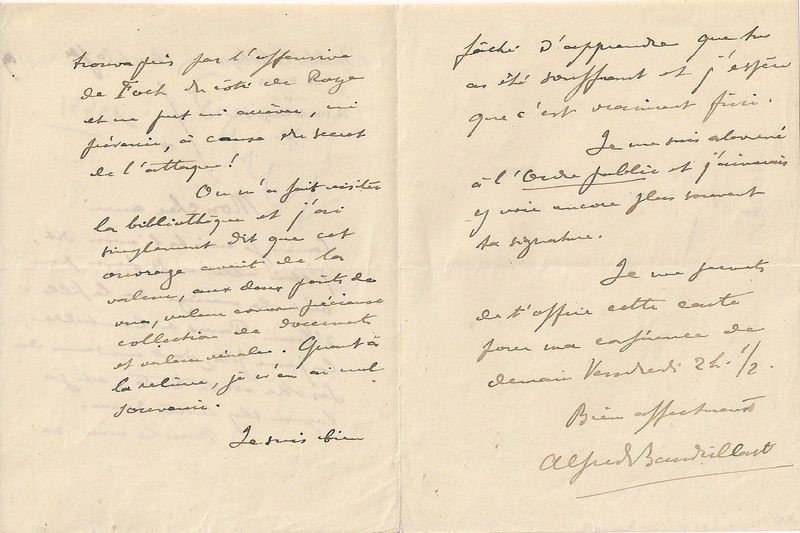 trouva pris par l'offensive
de Foch du côté de Roye
et ne put ni arriver, ni
prévenir, à cause du secret
de l'attaque!
On m'a fait visiter
la bibliothèque et j'ai
simplement dit que cet
ouvrage avait de la
valeur, aux deux points de
vue, valeur comme précieuse
collection de documents
et valeur vénale. Quant à
la reliure, je n'en ai nul
souvenir.
Je suis bien
fâché d'apprendre que tu
as été souffrant et j'espère
que c'est vraiment fini.
Je me suis abonné
à l'Ordre public et j'aimerais
y voir encore plus souvent
ta signature.
Je me permets
de t'offrir cette carte
pour ma conférence de
demain Vendredi 2h. 1/2.
Bien affectueust
Alfred Baudrillart